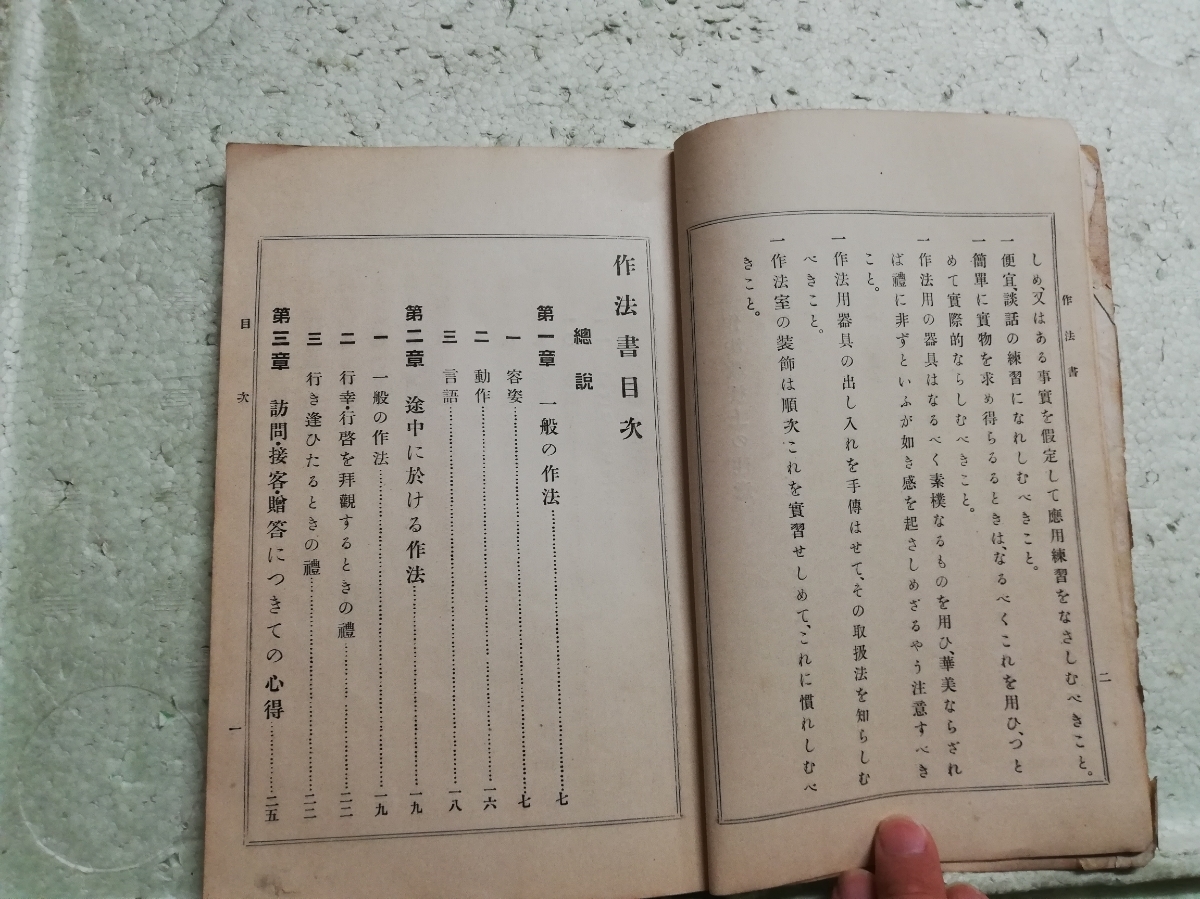 作法書
二
しめ、又はある事實を假定して應用練習をなさしむべきこと。
一便宜、談話の練習になれしむべきこと。
一簡單に實物を求め得らるるときは、なるべくこれを用ひ、つと
めて實際的ならしむべきこと。
一作法用の器具はなるべく素樸なるものを用ひ、華美ならざれ
ば禮に非ずといふが如き感を起さしめざるやう注意すべき
こと。
一作法用器具の出し入れを手傳はせて、その取扱法を知らしむ
べきこと。
一作法室の装飾は順次これを實習せしめて、これに慣れしむべ
きこと。
作法書目次
總說
第一章 一般の作法……七
一 容姿……七
二 動作……一六
三 言語……一八
第二章 途中に於ける作法……一九
一 一般の作法……一九
二 行幸・行啓を拜觀するときの禮……二二
三 行き逢ひたるときの禮……二二
第三章 訪問・接客・贈答につきての心得……二五
目次
一